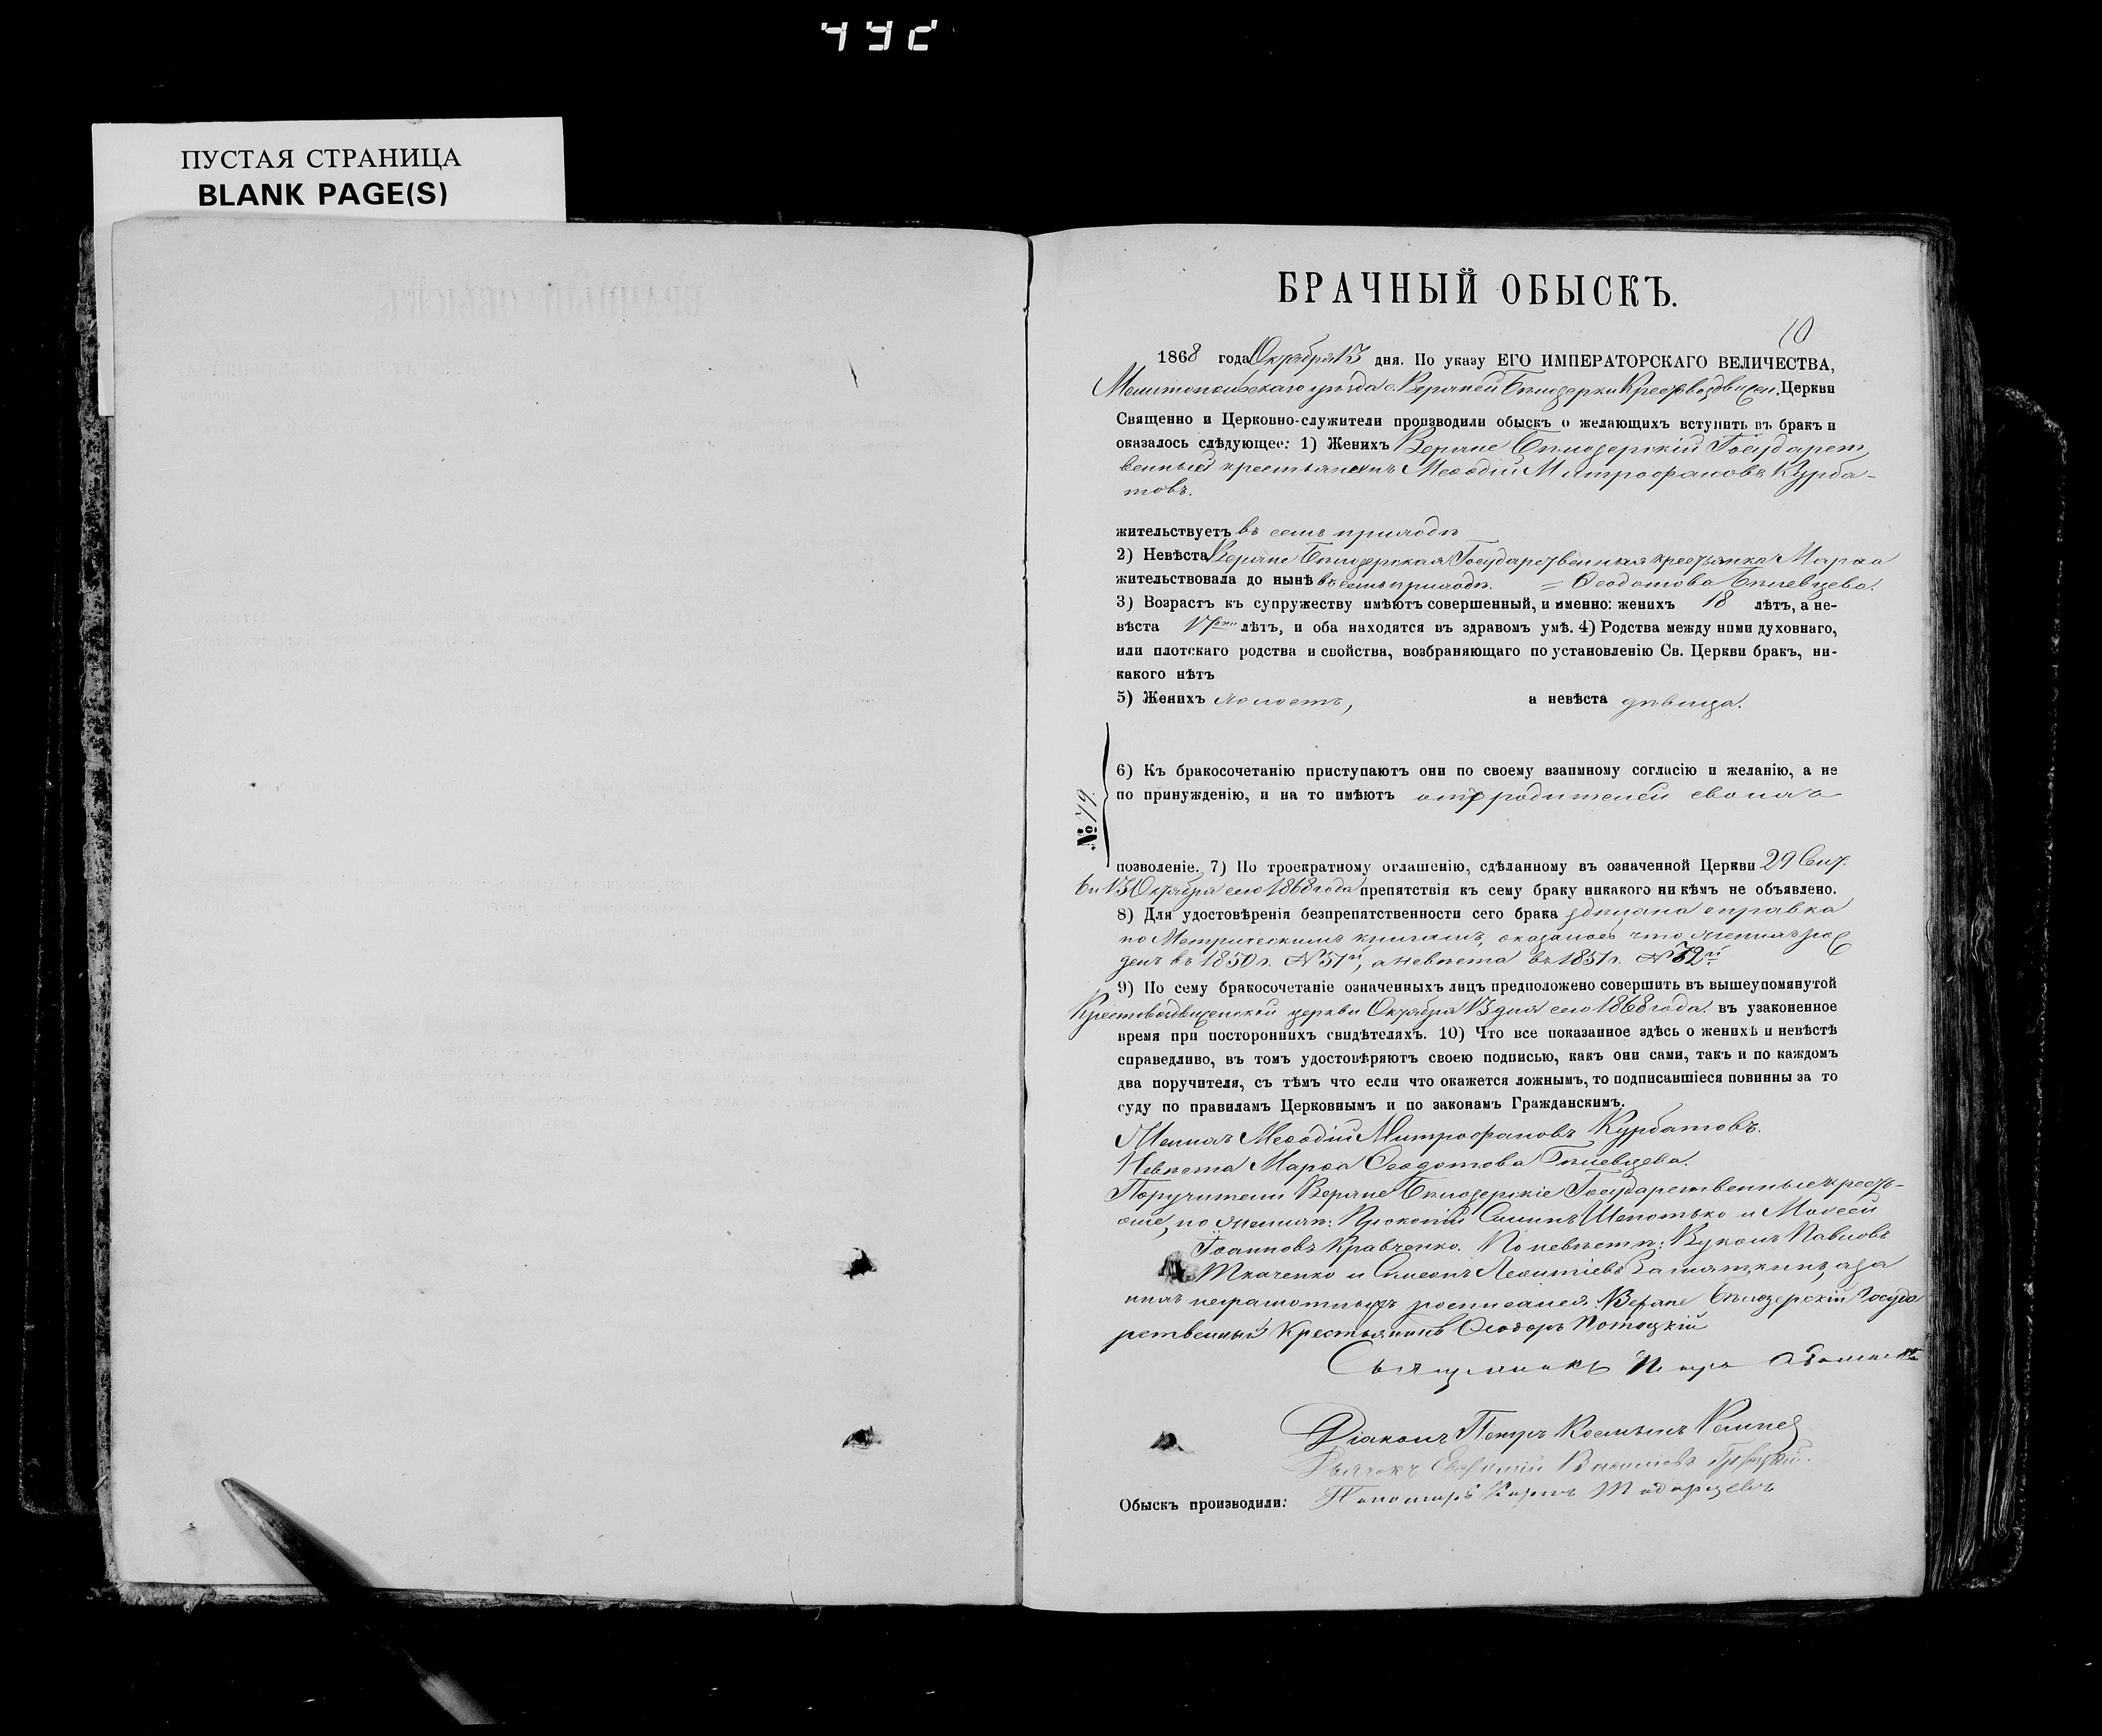 442
ПУСТАЯ СТРАНИЦА
BLANK PAGE(S)
БРАЧНЫЙ ОБЫСКЪ.
10
1868 года Октября 13 дня. По указу ЕГО ИМПЕРАТОРСКАГО ВЕЛИЧЕСТВА,
Мелитопольскаго уѣзда с. Верхней Бѣлозерки Крестовоздвижен. Церкви
Священно и Церковно-служители производили обыскъ о желающихъ вступить въ бракъ и
оказалось слѣдующее: 1) Женихъ Верхне Бѣлозерскій Государст
венный крестьянинъ Меѳодій Митрофановъ Курба-
товъ.
жительствуетъ въ семъ приходѣ
2) Невѣста Верхне Бѣлозерская Государственная крестьянка Марѳа
жительствовала до нынѣ въ семъ приходѣ. = Ѳеодотова Бѣлевцева.
3) Возрастъ къ супружеству имѣютъ совершенный, и именно: женихъ 18 лѣтъ, а не-
вѣста 17 лѣтъ, и оба находятся въ здравомъ умѣ. 4) Родства между ними духовнаго,
или плотскаго родства и свойства, возбраняющаго по установленію Св. Церкви бракъ, ни-
какого нѣтъ
5) Женихъ холостъ, а невѣста дѣвица.
6) Къ бракосочетанію приступаютъ они по своему взаимному согласію и желанію, а не
по принужденію, и на то имѣютъ отъ родителей своихъ
№ 49.
позволеніе. 7) По троекратному оглашенію, сдѣланному въ означенной Церкви 29 Сент.
6 и 13 Октября сего 1868 года препятствія къ сему браку никакого ни кѣмъ не объявлено.
8) Для удостовѣренія безпрепятственности сего брака здѣлана справка
по Метрическимъ книгамъ, оказалось что женихъ рож
денъ въ 1850 г. № 51й, а невѣста въ 1851 г. № 72й
9) По сему бракосочетаніе означенныхъ лицъ предположено совершить въ вышеупомянутой
Крестовоздвиженской церкви Октября 13 дня сего 1868 года. въ узаконенное
время при постороннихъ свидѣтеляхъ. 10) Что все показанное здѣсь о женихѣ и невѣстѣ
справедливо, въ томъ удостовѣряютъ своею подписью, какъ они сами, такъ и по каждомъ
два поручителя, съ тѣмъ что если что окажется ложнымъ, то подписавшіеся повинны за то
суду по правиламъ Церковнымъ и по законамъ Гражданскимъ.
Женихъ Меѳодій Митрофановъ Курбатовъ.
Невѣста Марѳа Ѳеодотова Бѣлевцева.
Поручители Верхне Бѣлозерскіе Государственные кресть-
яне, по женихѣ: Прокопій Шепотько и Моисей
Іоанновъ Кравченко. По невѣстѣ: Вуколъ Павловъ
Ткаченко и Симеонъ Леонтіевъ а за
нихъ неграмотныхъ росписался Верхне Бѣлозерскій Госуда
рственный Крестьянинъ Ѳеодоръ Потоцкій
Священникъ Петръ
Діаконъ Петръ Косьминъ
Дьячекъ Евфимій Васильевъ
Обыскъ производили: Пономарь Карпъ